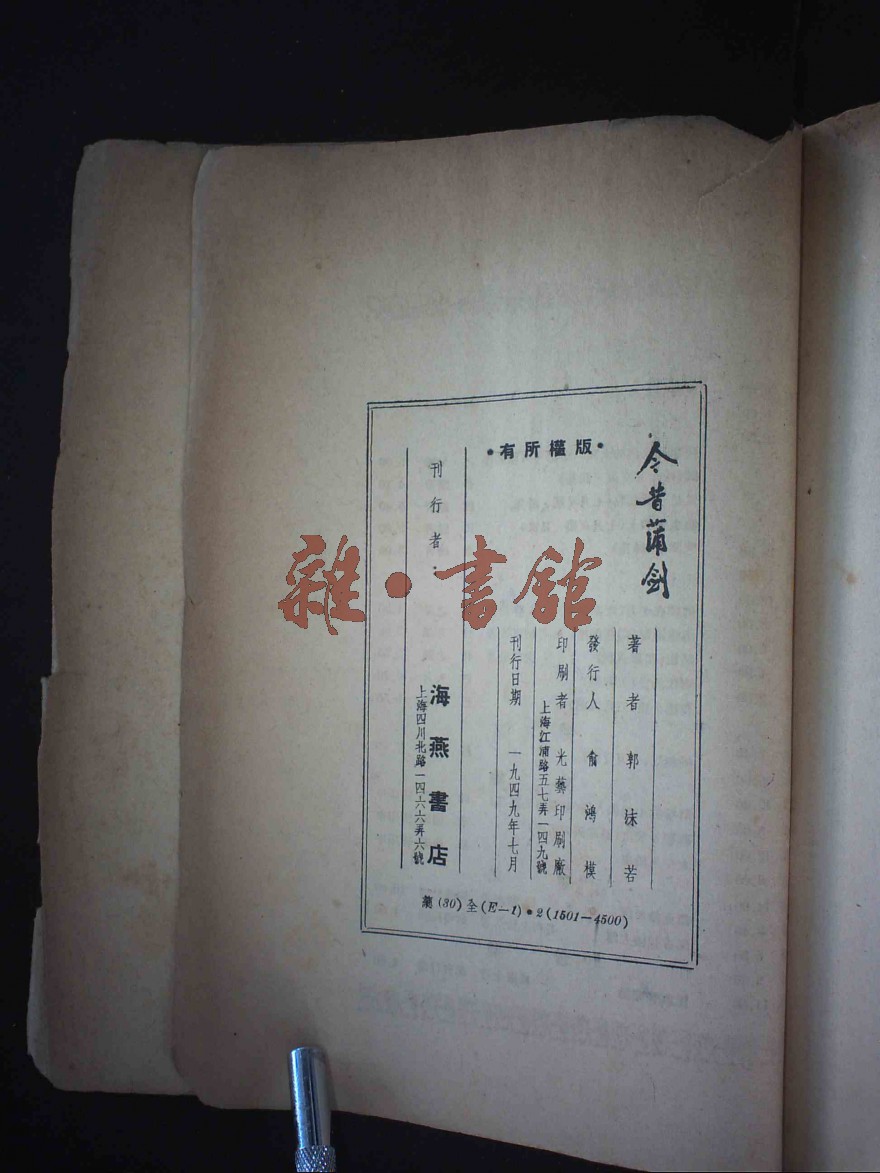 今昔蒲剑
有所權版
著者 郭沫若
發行人 俞鴻模
印刷者 光藝印刷廠
上海江浦路五七弄一四九號
刊行日期 一九四九年七月
刊行者：
海燕書店
上海四川北路一四六六弄六號
藥(30)全(E—1)•2(1501—4500)
雜•書館